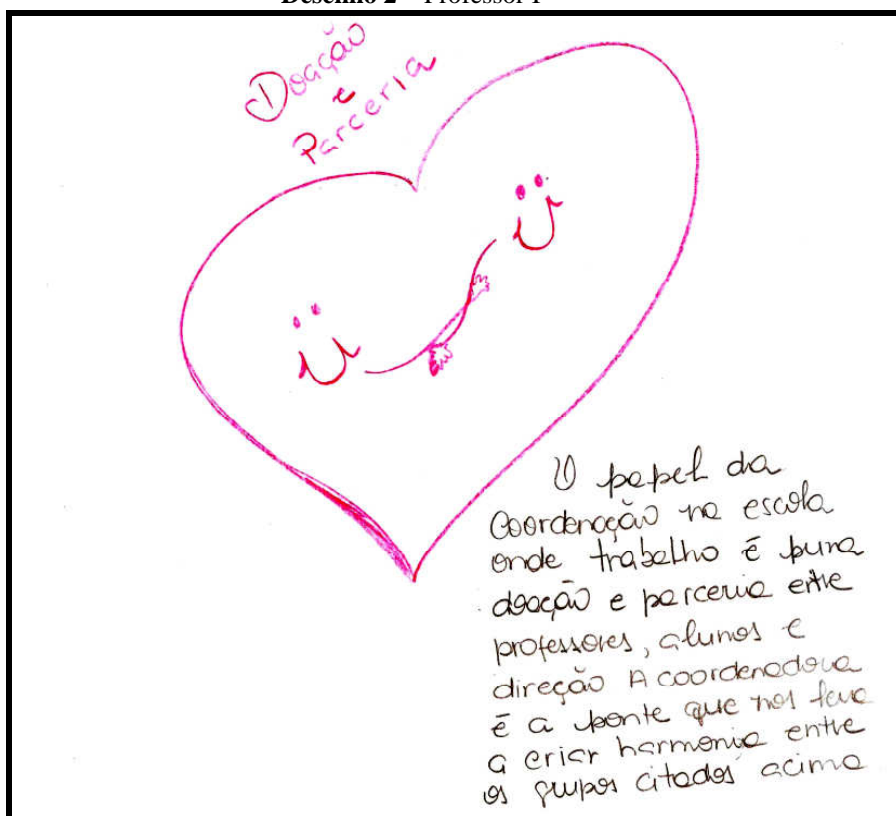 Desenho 2 – Professor 1
Doação
e
Parceria
O papel da
Coordenação na escola
onde trabalho é pura
doação e parceria entre
professores, alunos e
direção A coordenadora
é a ponte que nos leva
a criar harmonia entre
os grupos citados acima